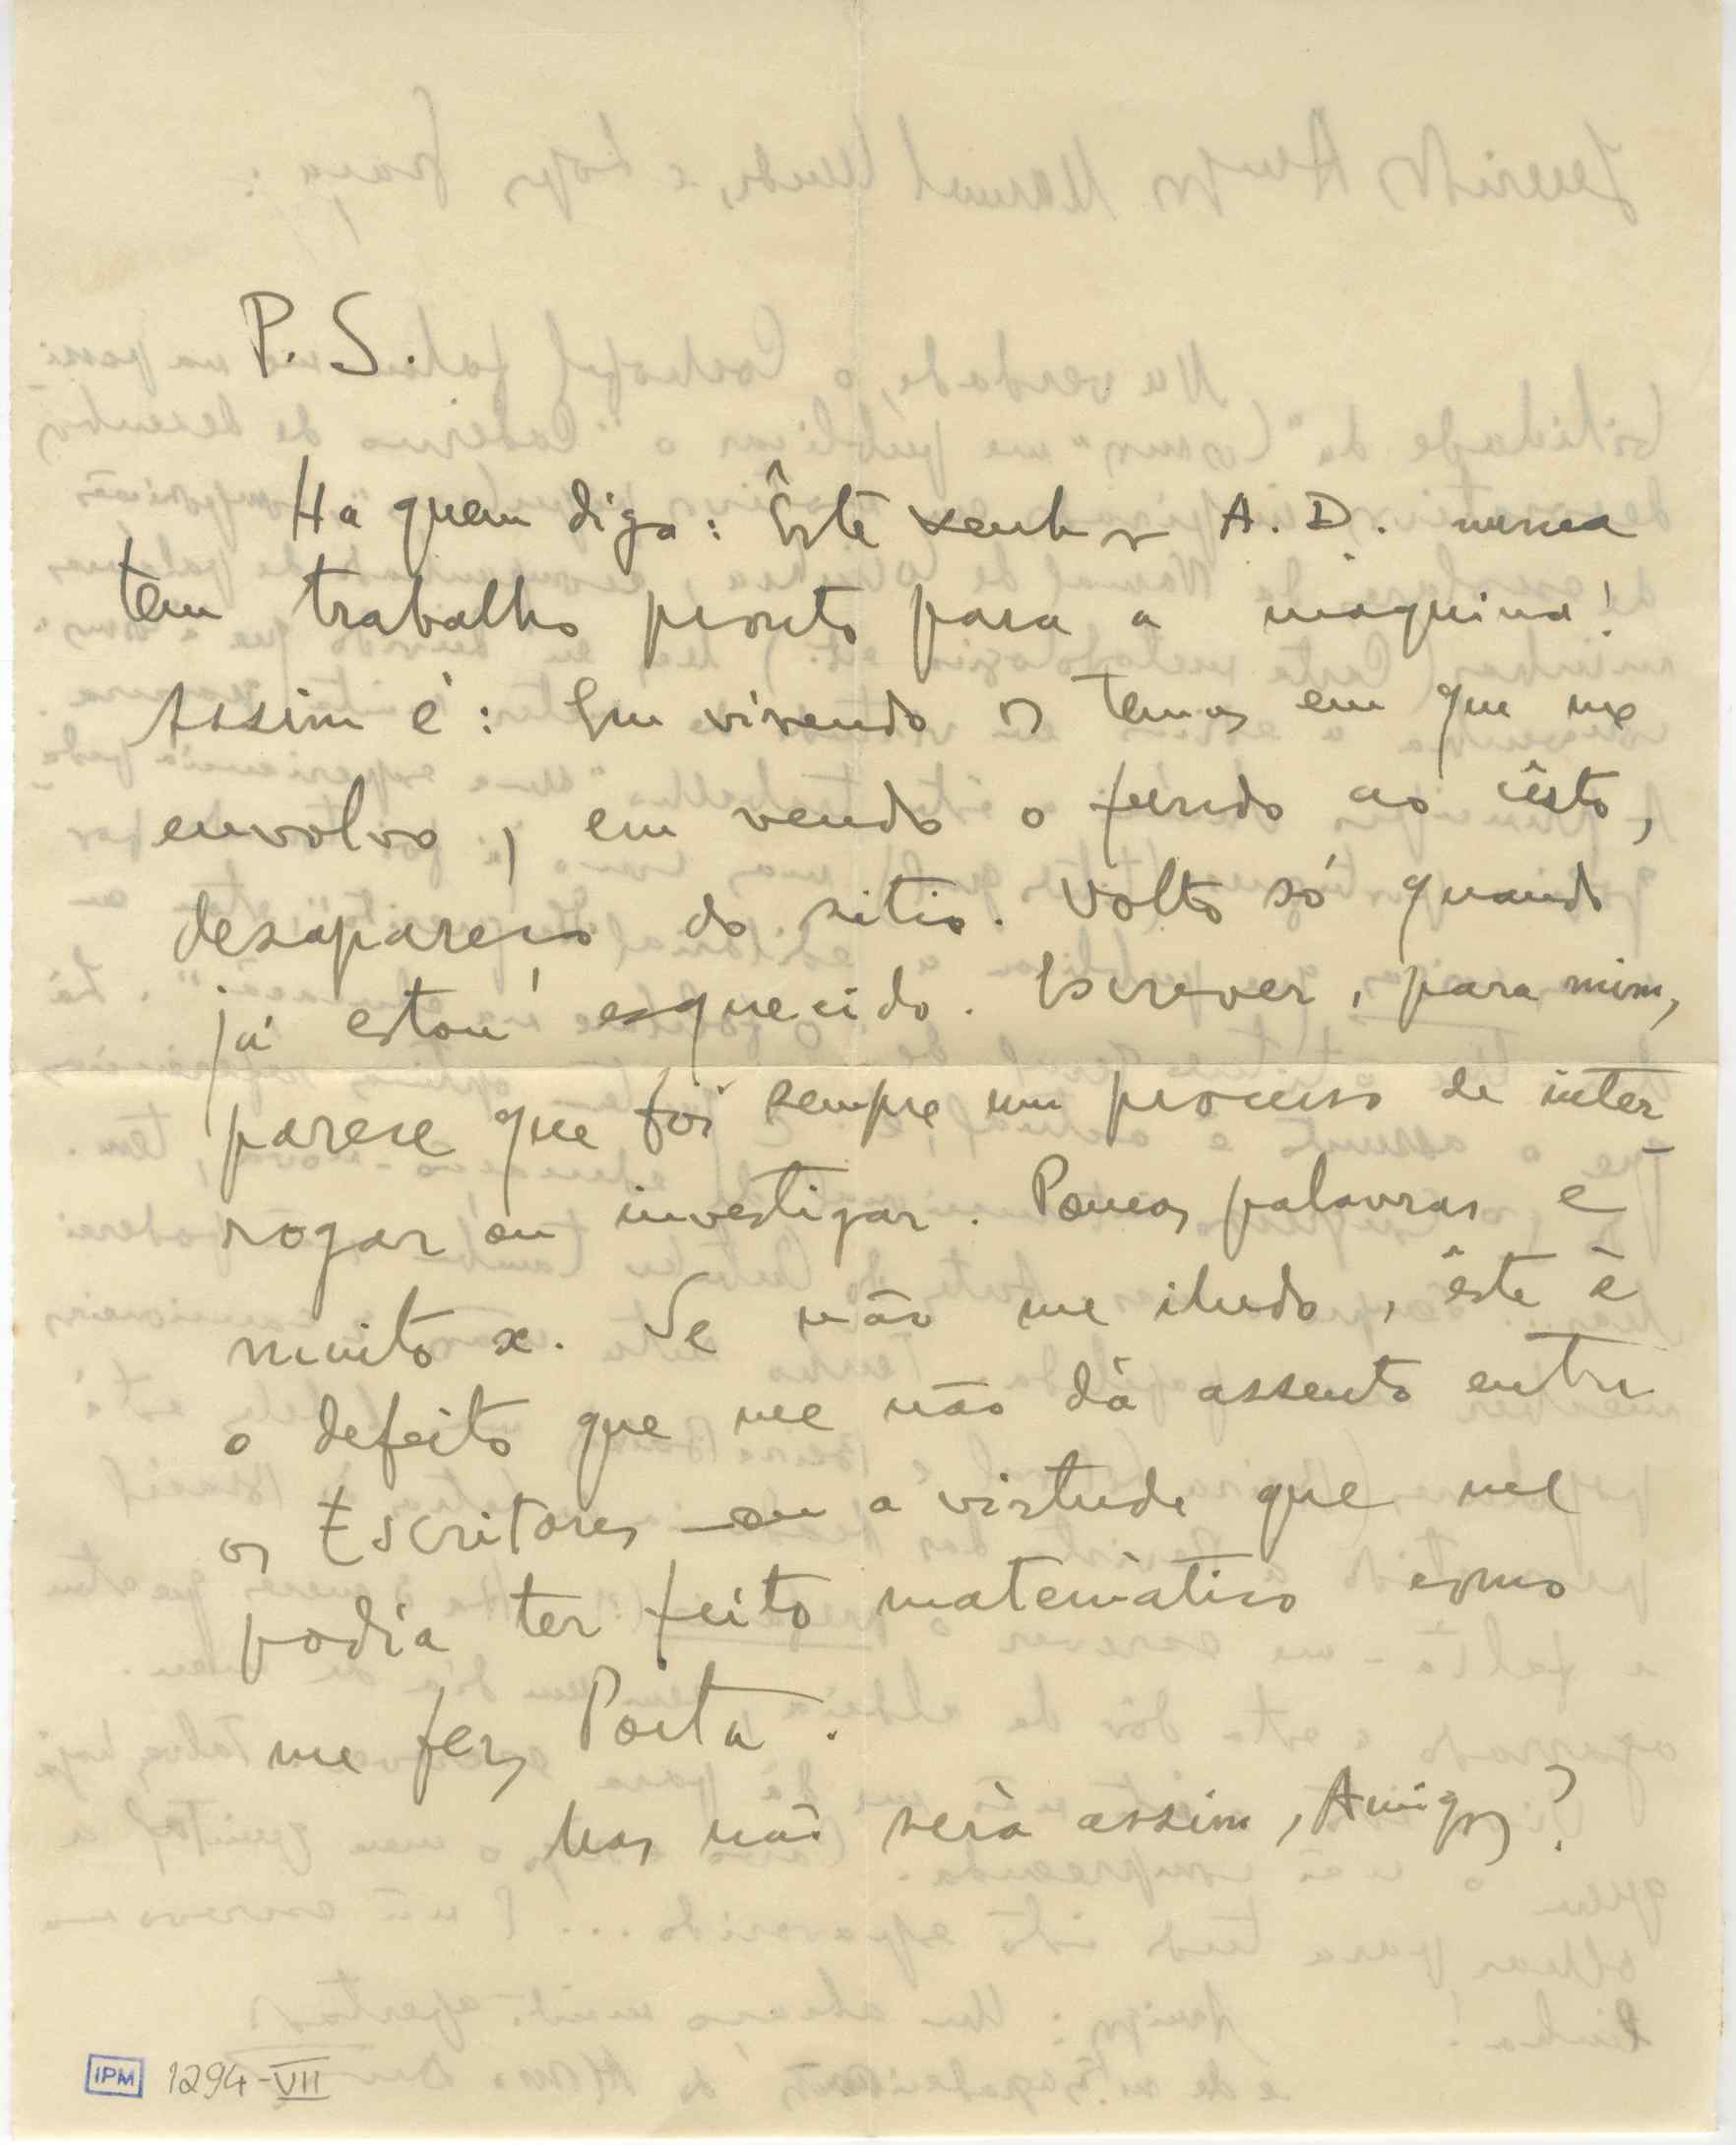 P.S.
Ha quem diga: Êste senhor A. D. nunca
tem trabalho pronto para a maquina!
Assim é: Em vivendo os temas em que me
envolvo, em vendo o fundo ao cêsto,
desapareço do sitio. Volto só quando
já estou esquecido. Escrever, para mim,
parece que foi sempre um processo de inter-
rogar ou investigar. Poucas palavras e
muito x. Se não me iludo, êste é
o defeito que me não dá assento entre
os Escritores – ou a virtude que me
podia ter feito matemático como
me fez Poeta.
Mas não será assim, Amigos?
IPM 1294-VII